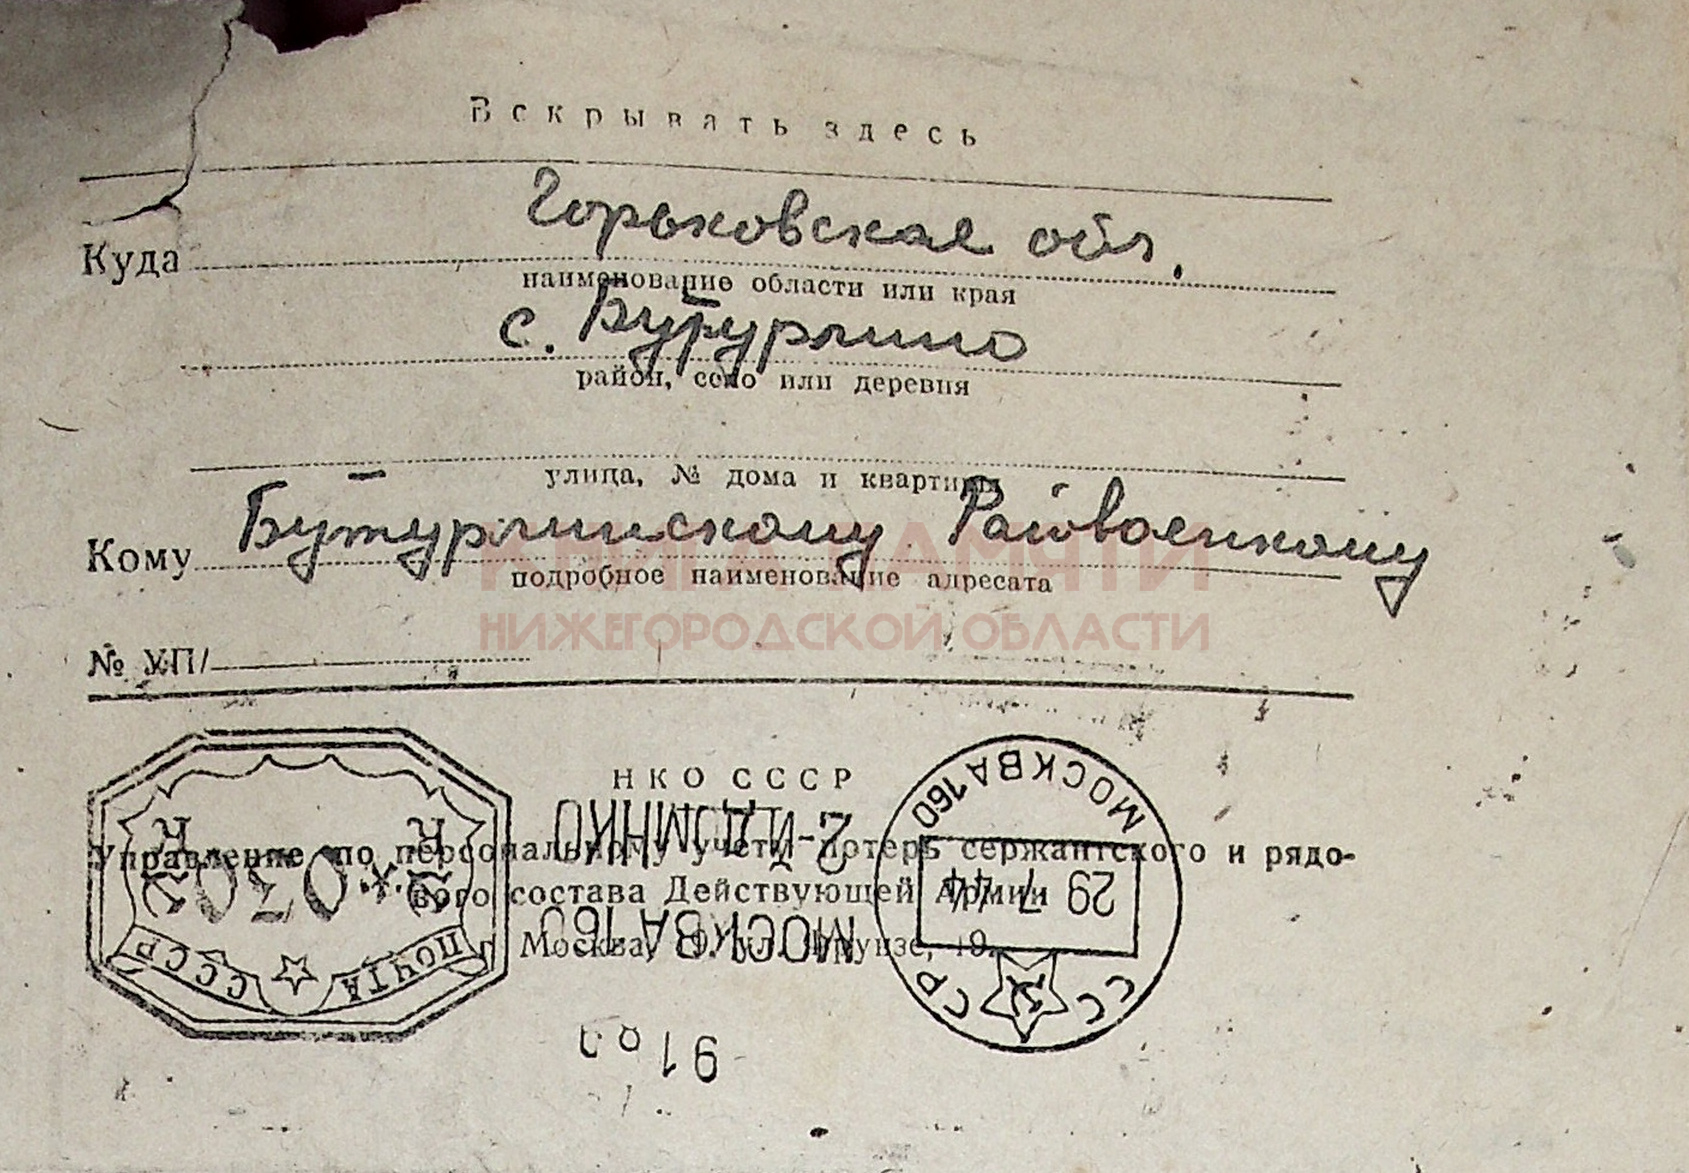 Вскрывать здесь
Горьковская обл.
Куда
наименование области или края
с. Бутурлино
район, село или деревня
улица, № дома и квартиры
Бутурлинскому Райвоенкому
Кому
подробное наименование адресата
КНИГА ПАМЯТИ
НИЖЕГОРОДСКОЙ ОБЛАСТИ
№ УП/
НКО СССР
Управление по персональному учету потерь сержантского и рядо-
вого состава Действующей Армии
Москва, ул. Фрунзе, 19.
МОСКВА 160
29 7 44
СССР
МОСКВА 160
2-Й ДОМ НКО
ПОЧТА СССР
К. 030 К.